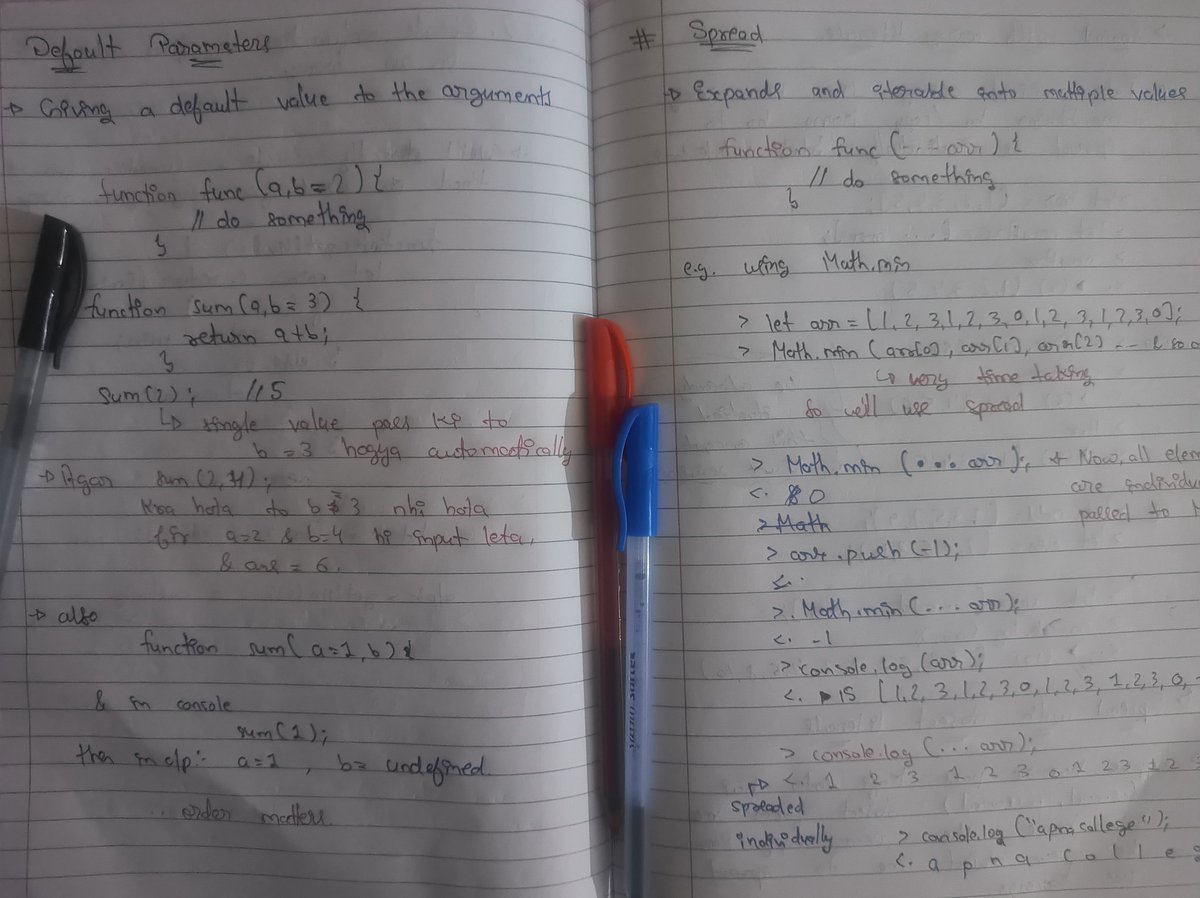 Default Parameters
→ Giving a default value to the arguments
function func (a, b = 2) {
// do something
}
function sum(a, b = 3) {
return a+b;
}
sum(2); // 5
↳ single value pass ki to
b = 3 hogya automatically
→ Agar sum(2,4);
kraa hota to b = 3 nhi hota
fir a=2 & b=4 hi input leta,
& ans = 6.
→ also
function sum( a=1, b) {
& in console
sum(1);
then in o/p:- a=1 , b= undefined.
order matters
# Spread
→ Expands and iterable into multiple values
function func (... arr) {
// do something
}
e.g. using Math.min
> let arr = [1, 2, 3, 1, 2, 3, 0, 1, 2, 3, 1, 2, 3, 0];
> Math.min (arr[0], arr[1], arr[2] -- & so o
↳ very time taking
so we'll use spread
> Math.min (... arr); * Now, all elem
are individu
passed to
<. 0
> Math
> arr.push (-1);
<.
>. Math.min (... arr);
<. -1
> console.log (arr);
<. ▶ 15 [1, 2, 3, 1, 2, 3, 0, 1, 2, 3, 1, 2, 3, 0, -
> console.log (... arr);
<. 1 2 3 1 2 3 0 1 2 3 1 2 3
↳ spreaded
individually
> console.log ("apna college");
<. a p n a c o l l e g